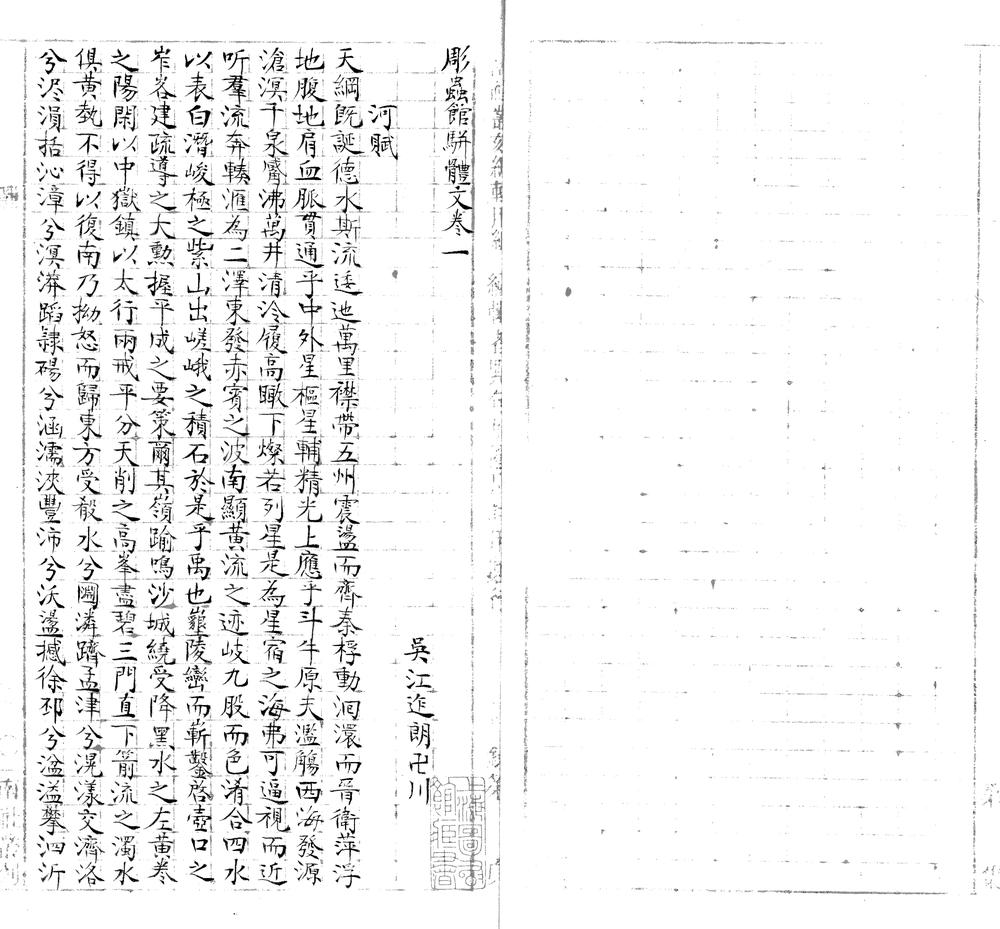 彫蟲館駢體文卷一
吳江迮朗卍川
河賦
天綱旣誕德水斯流逶迆萬里襟帶五州震盪而齊秦桴動洄澴而晋衛萍浮
地腹地肩血脈貫通乎中外星樞星輔精光上應乎斗牛原夫濫觴西海發源
滄溟千泉觱沸萬井清泠履高瞰下燦若列星是為星宿之海弗可逼視而近
听羣流奔輳滙為二澤東發赤賓之波南顯黃流之迹岐九股而色淆合四水
以表白潛峻極之紫山出嵯峨之積石於是乎禹也巃陵巒而嶄鑿啓壺口之
岝峉建疏導之大勲握平成之要策爾其嶺踰鳴沙城繞受降黑水之左黃卷
之陽閑以中嶽鎮以太行兩戒平分天削之高峯盡碧三門直下箭流之濁水
俱黃埶不得以復南乃拗怒而歸東方受穀水兮𤄷潾躋孟津兮滉漾交濟洛
兮淤溳括沁漳兮溟漭蹈隷碭兮涵濡浹豐沛兮沃盪撼徐邳兮湓溢擎泗沂